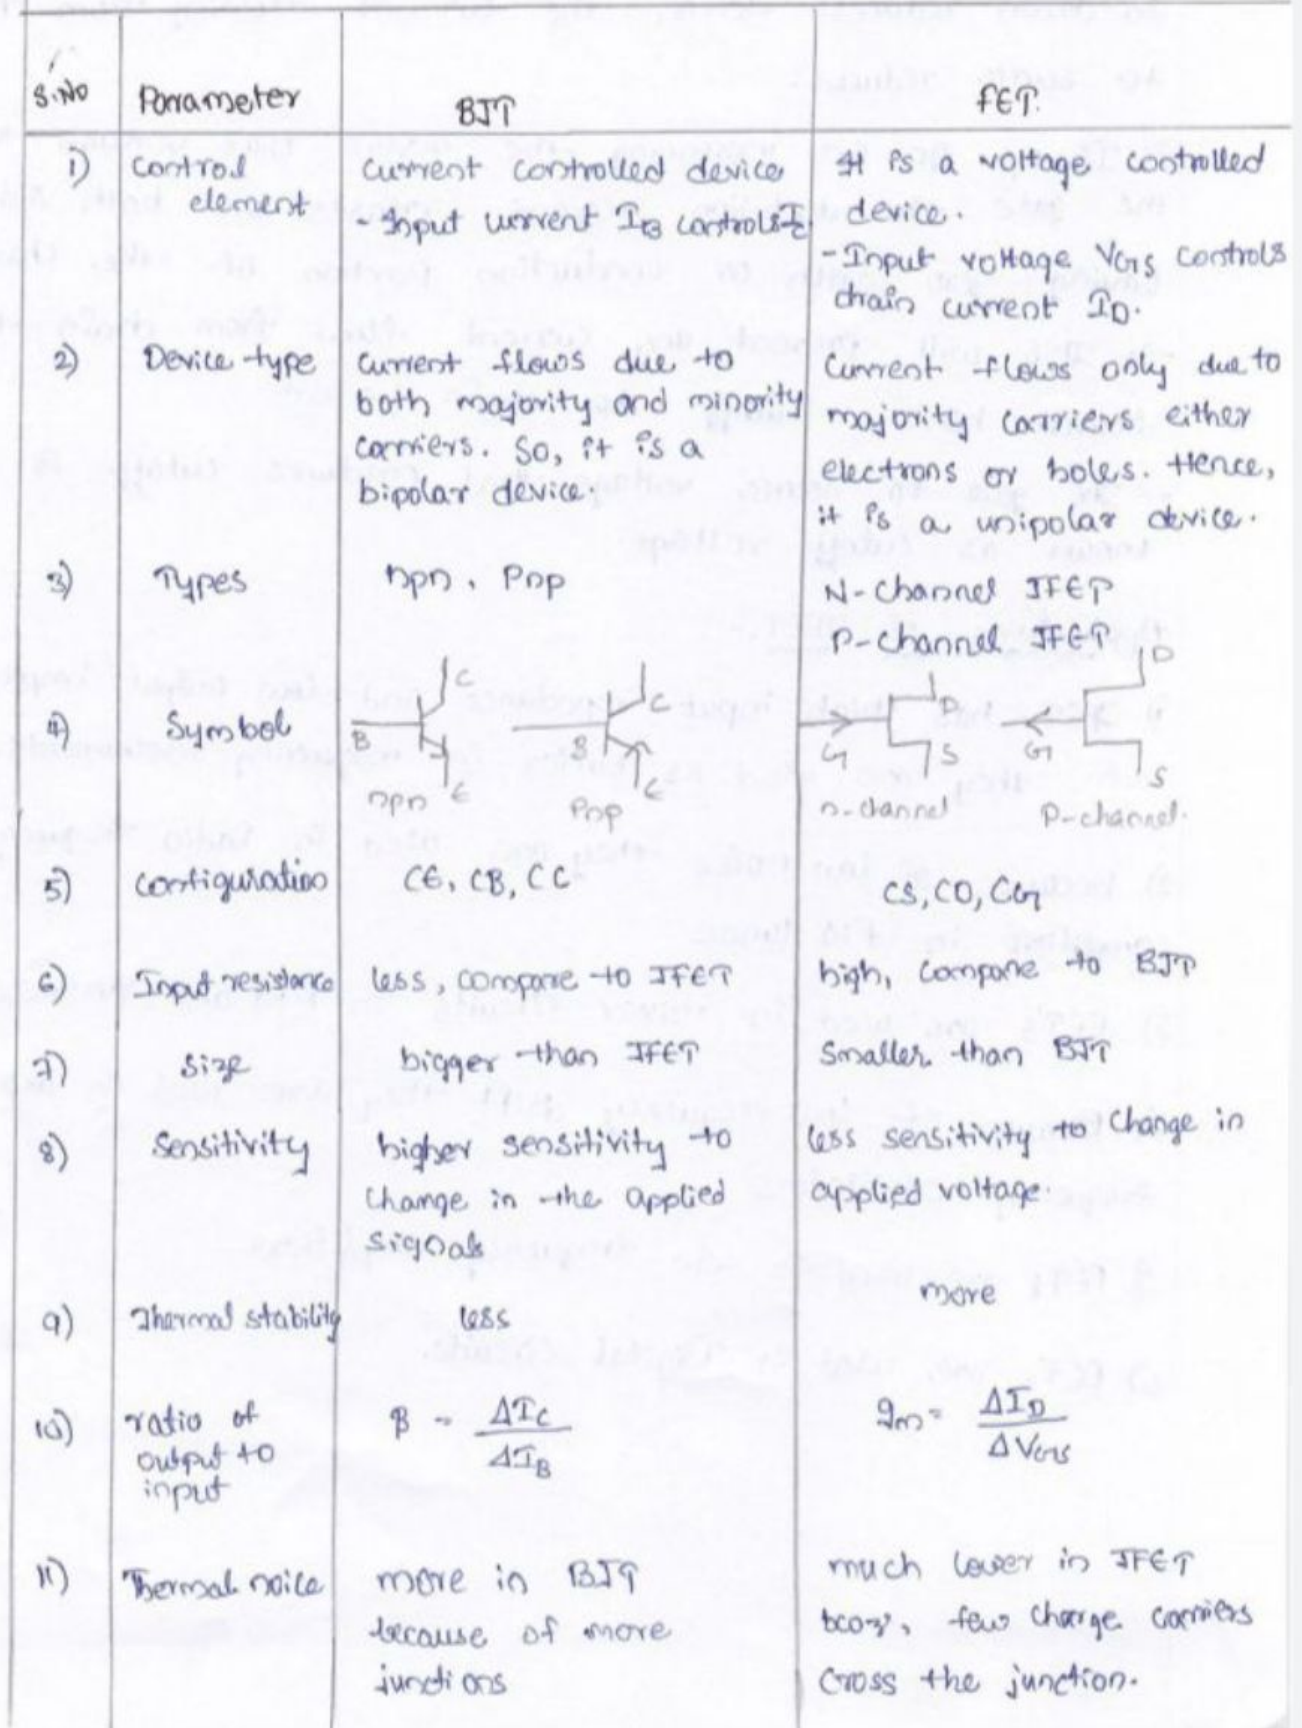 S.No Parameter BJT FET.
1) Control element
Current controlled device
- Input current IB controls IC
It is a voltage controlled
device.
- Input voltage VGS controls
drain current ID.
2) Device type
Current flows due to
both majority and minority
carriers. So, it is a
bipolar device.
Current flows only due to
majority carriers either
electrons or holes. Hence,
it is a unipolar device.
3) Types
npn, Pnp
N-channel JFET
P-channel JFET
4) Symbol
B C E
npn
B C E
Pnp
G D S
n-channel
G D S
P-channel.
5) Configuration
CE, CB, CC
CS, CD, CG
6) Input resistance
less, compare to JFET
high, compare to BJT
7) Size
bigger than JFET
Smaller than BJT
8) Sensitivity
higher sensitivity to
change in the applied
signals
less sensitivity to change in
applied voltage.
9) Thermal stability
less
more
10) ratio of
output to
input
β = ΔIC / ΔIB
gm = ΔID / ΔVGS
11) Thermal noice
more in BJT
because of more
junctions
much lower in JFET
bcoz, few charge carriers
cross the junction.